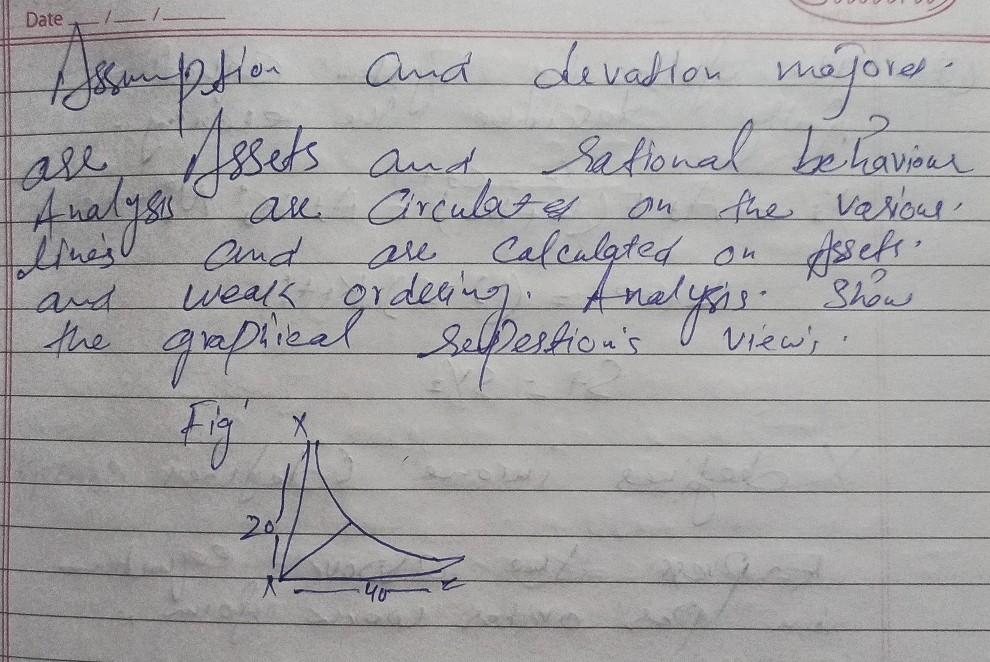 Date / /
Assumption and devation majores.
are Assets and rational behaviour
Analysis are Circulates on the various.
lines and are Calculated on Assets.
and weak ordeeing. Analysis. Show
the graphical views.
Fig
X
20
X 40